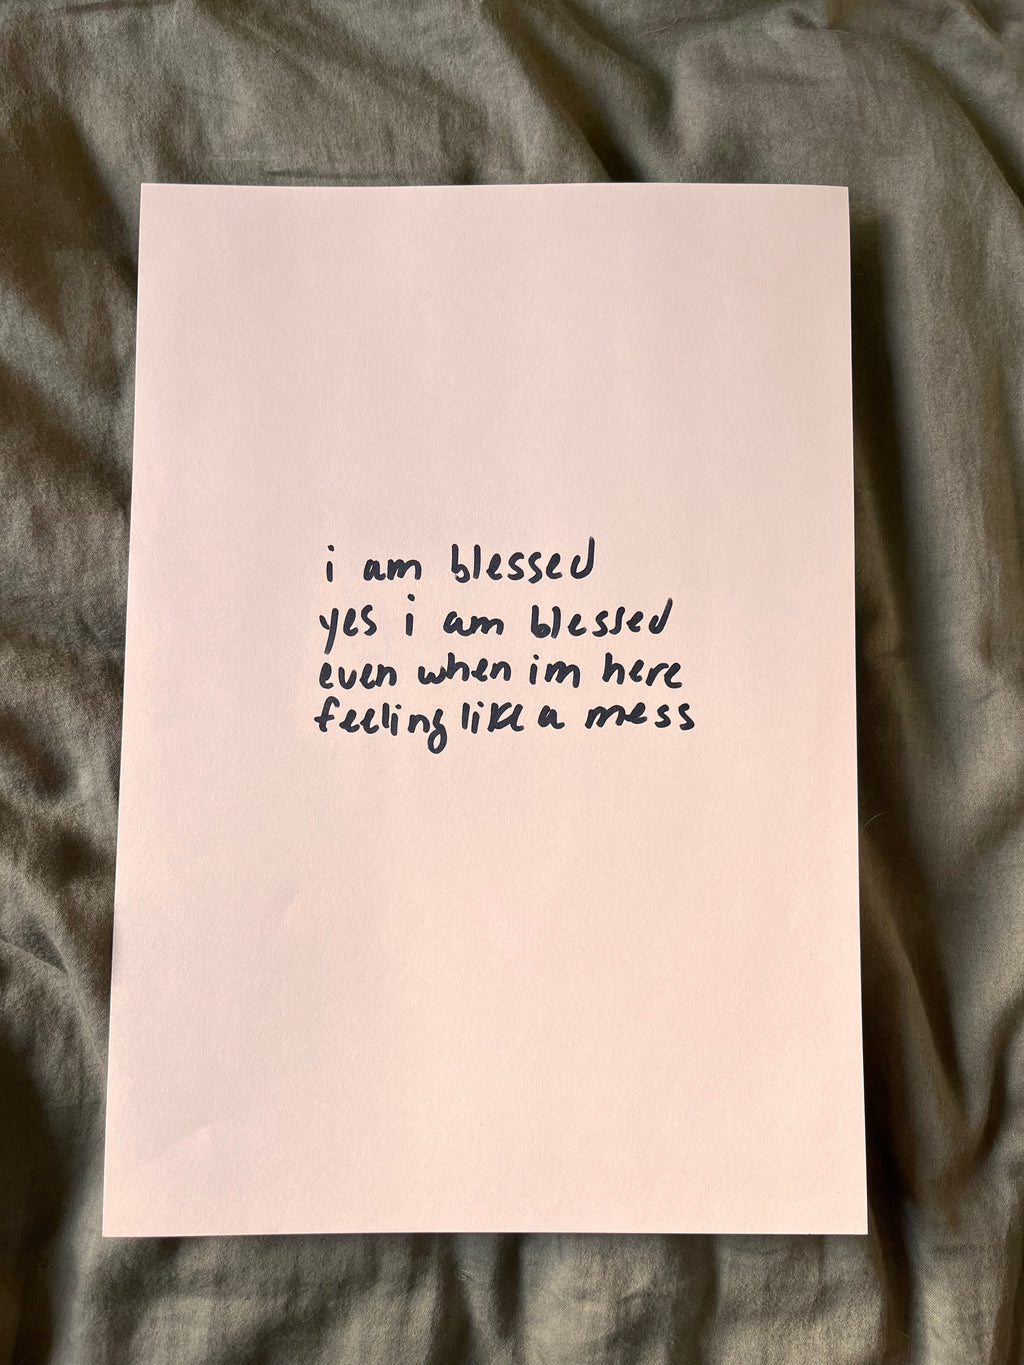 i am blessed
yes i am blessed
even when im here
feeling like a mess